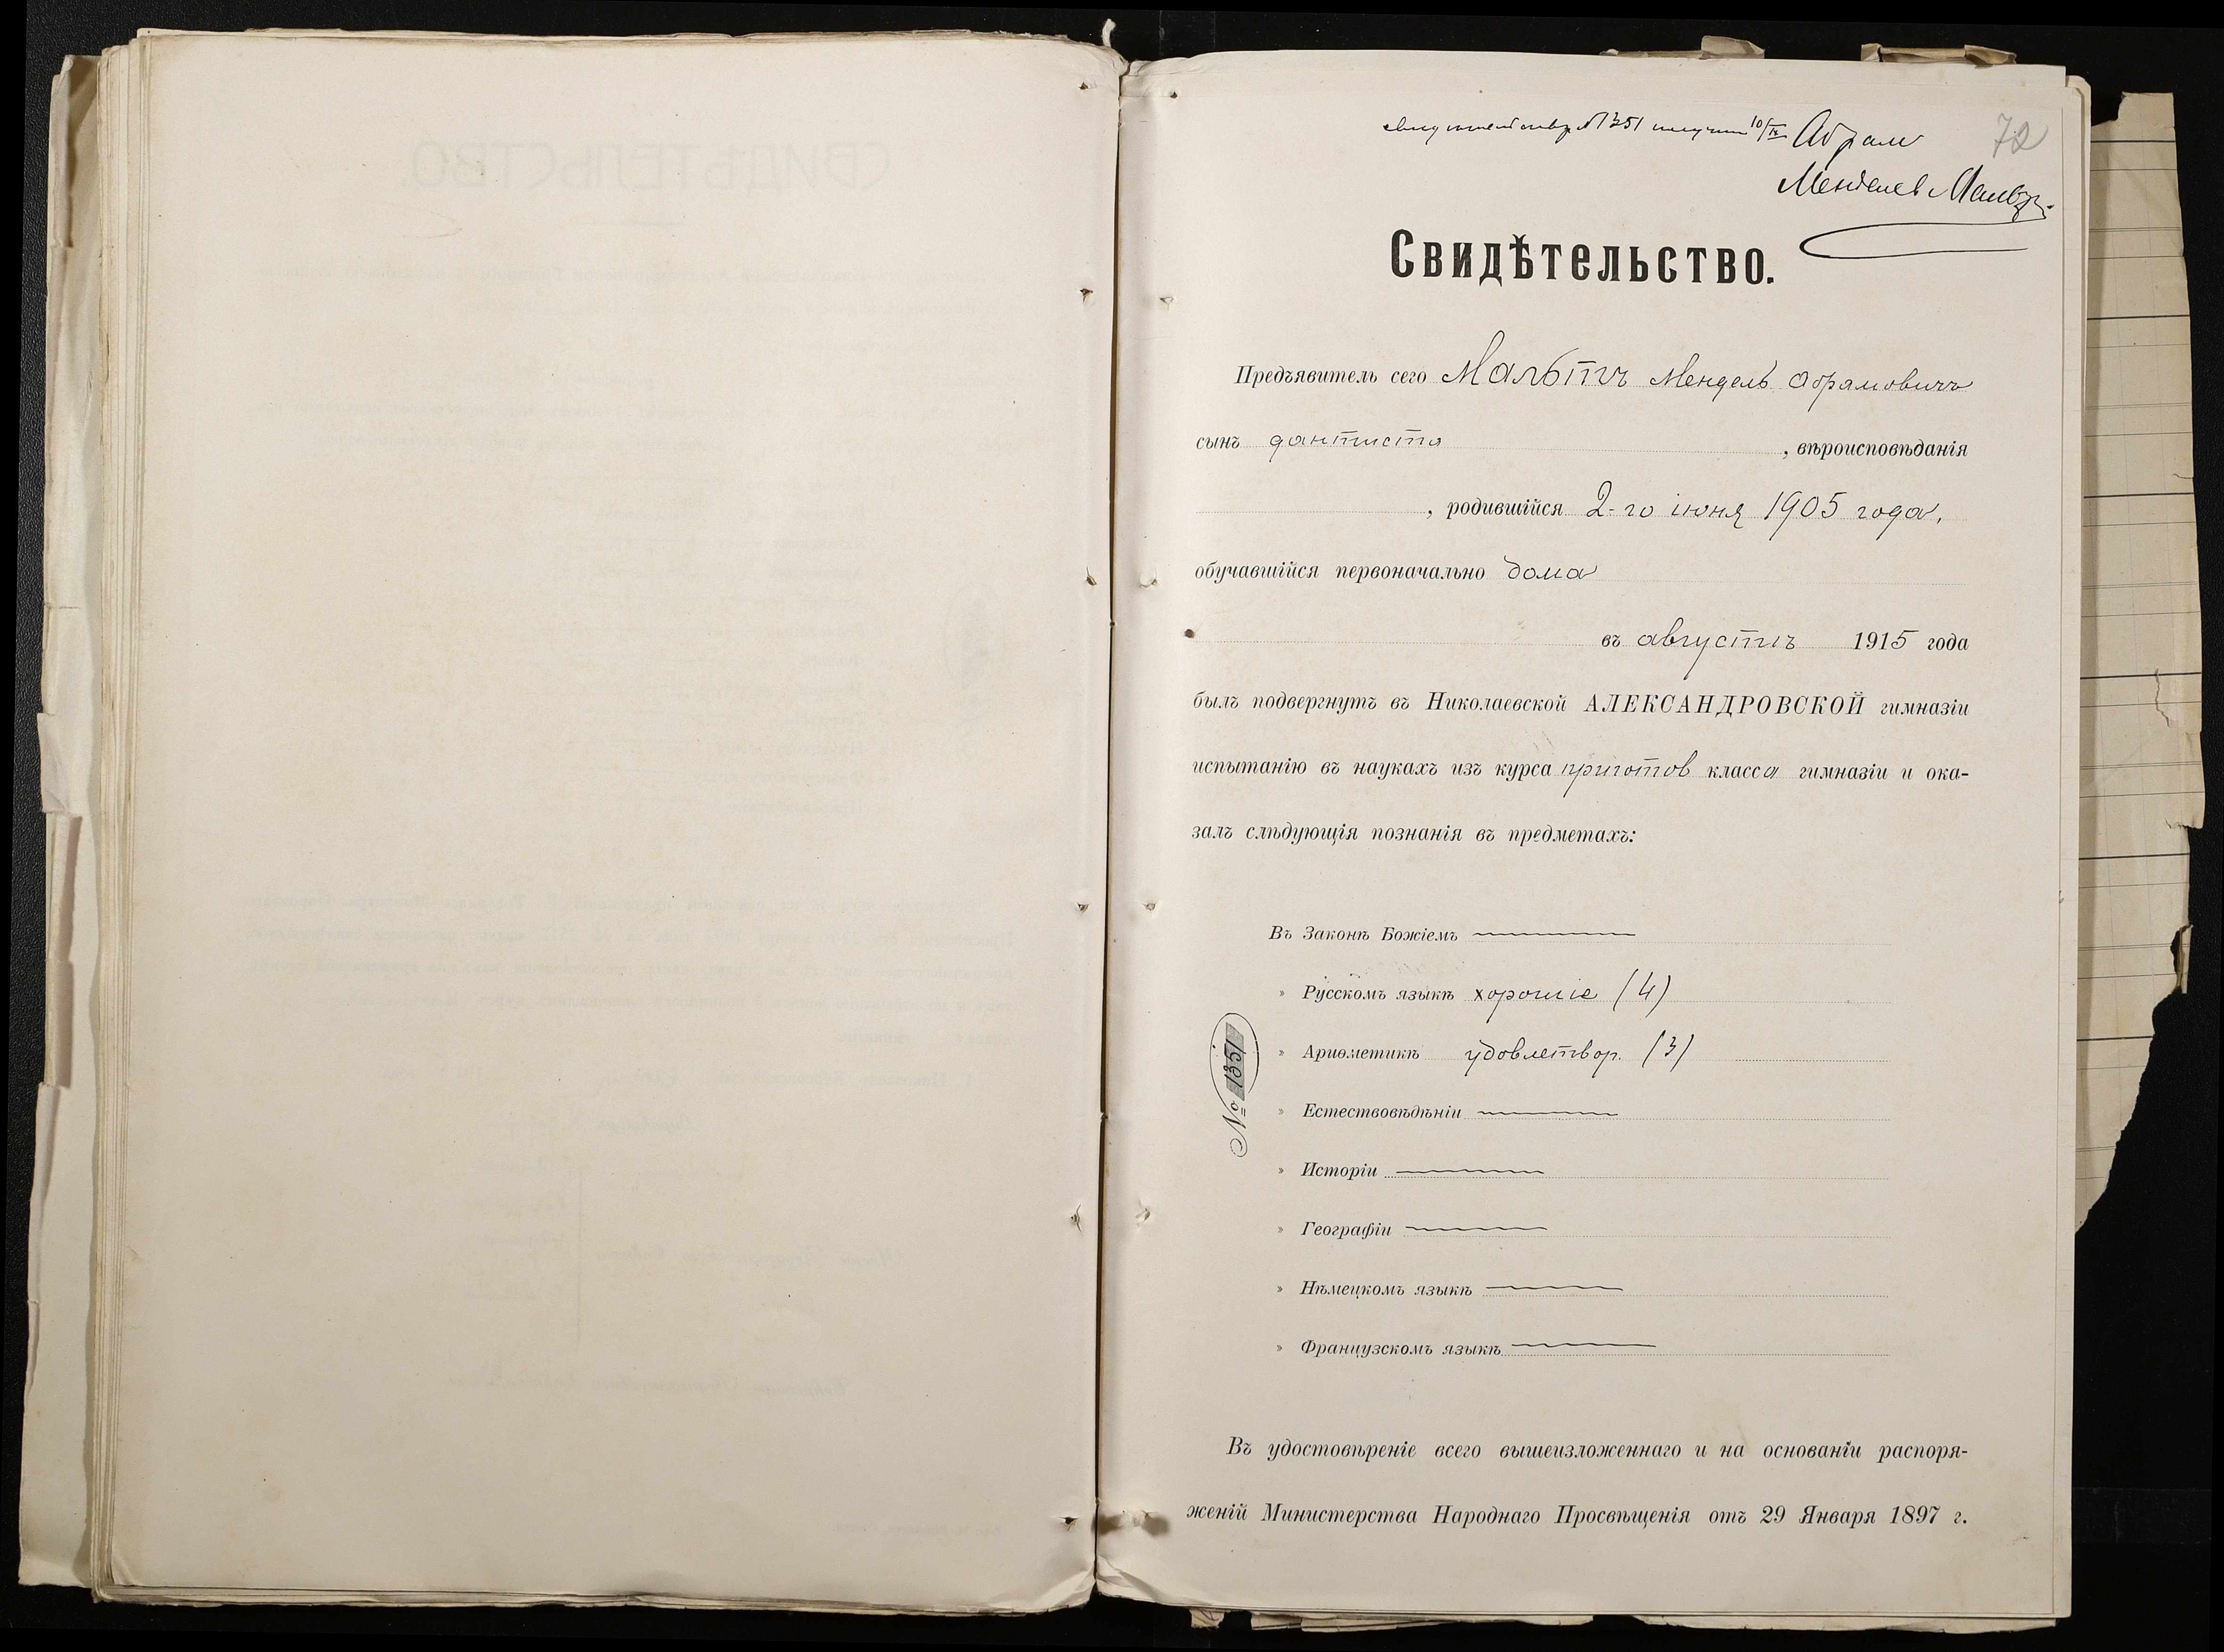 свидетельство №1351 получил 10/IX Абрам
72
Менделев Мальц
Свидѣтельство.
Предъявитель сего Мальтцъ Мендель Абрамовичъ
сынъ дантиста , вѣроисповѣданія
, родившійся 2-го іюня 1905 года,
обучавшійся первоначально дома
въ августѣ 1915 года
былъ подвергнутъ въ Николаевской АЛЕКСАНДРОВСКОЙ гимназіи
испытанію въ наукахъ изъ курса приготов класса гимназіи и ока-
залъ слѣдующія познанія въ предметахъ:
Въ Законѣ Божіемъ
» Русскомъ языкѣ хорошіе (4)
» Ариѳметикѣ удовлетвор. (3)
» Естествовѣдѣніи
» Исторіи
» Географіи
» Нѣмецкомъ языкѣ
» Французскомъ языкѣ
№ 1351
Въ удостовѣреніе всего вышеизложеннаго и на основаніи распоря-
женій Министерства Народнаго Просвѣщенія отъ 29 Января 1897 г.